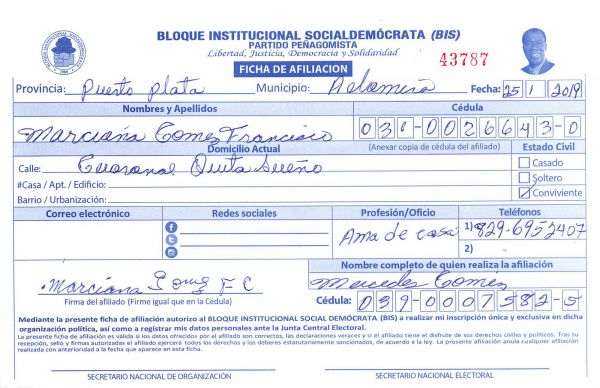 BLOQUE INSTITUCIONAL SOCIALDEMÓCRATA (BIS)
PARTIDO PEÑAGOMISTA
Libertad, Justicia, Democracia y Solidaridad
FICHA DE AFILIACION
43787
Provincia: Puerto Plata Municipio: Altamira Fecha: 25 1 2019
Nombres y Apellidos Cédula
Marciana Gomez Francisco 031-0026643-0
Domicilio Actual (Anexar copia de cédula del afiliado) Estado Civil
Calle: Quita Sueño
Casado
#Casa / Apt. / Edificio: Soltero
Barrio / Urbanización: Conviviente
Correo electrónico Redes sociales Profesión/Oficio Teléfonos
Ama de casa 1) 829-6952407
2)
Nombre completo de quien realiza la afiliación
Marciana Gomez F C Mercedes Gomez
Firma del afiliado (Firme igual que en la Cédula) Cédula: 039-0007582-5
Mediante la presente ficha de afiliación autorizo al BLOQUE INSTITUCIONAL SOCIAL DEMÓCRATA (BIS) a realizar mi inscripción única y exclusiva en dicha
organización política, así como a registrar mis datos personales ante la Junta Central Electoral.
La presente ficha de afiliación es válida si los datos ofrecidos por el afiliado son correctos, las declaraciones veraces y si el afiliado tiene el disfrute de sus derechos civiles y políticos. Tras su
recepción, sello y firmas autorizadas el afiliado ejercerá todos los derechos y los deberes estatutariamente sancionados, de acuerdo a la ley. La presente afiliación anula cualquier afiliación
realizada con anterioridad a la fecha que aparece en esta ficha.
SECRETARIO NACIONAL DE ORGANIZACIÓN SECRETARIO NACIONAL ELECTORAL